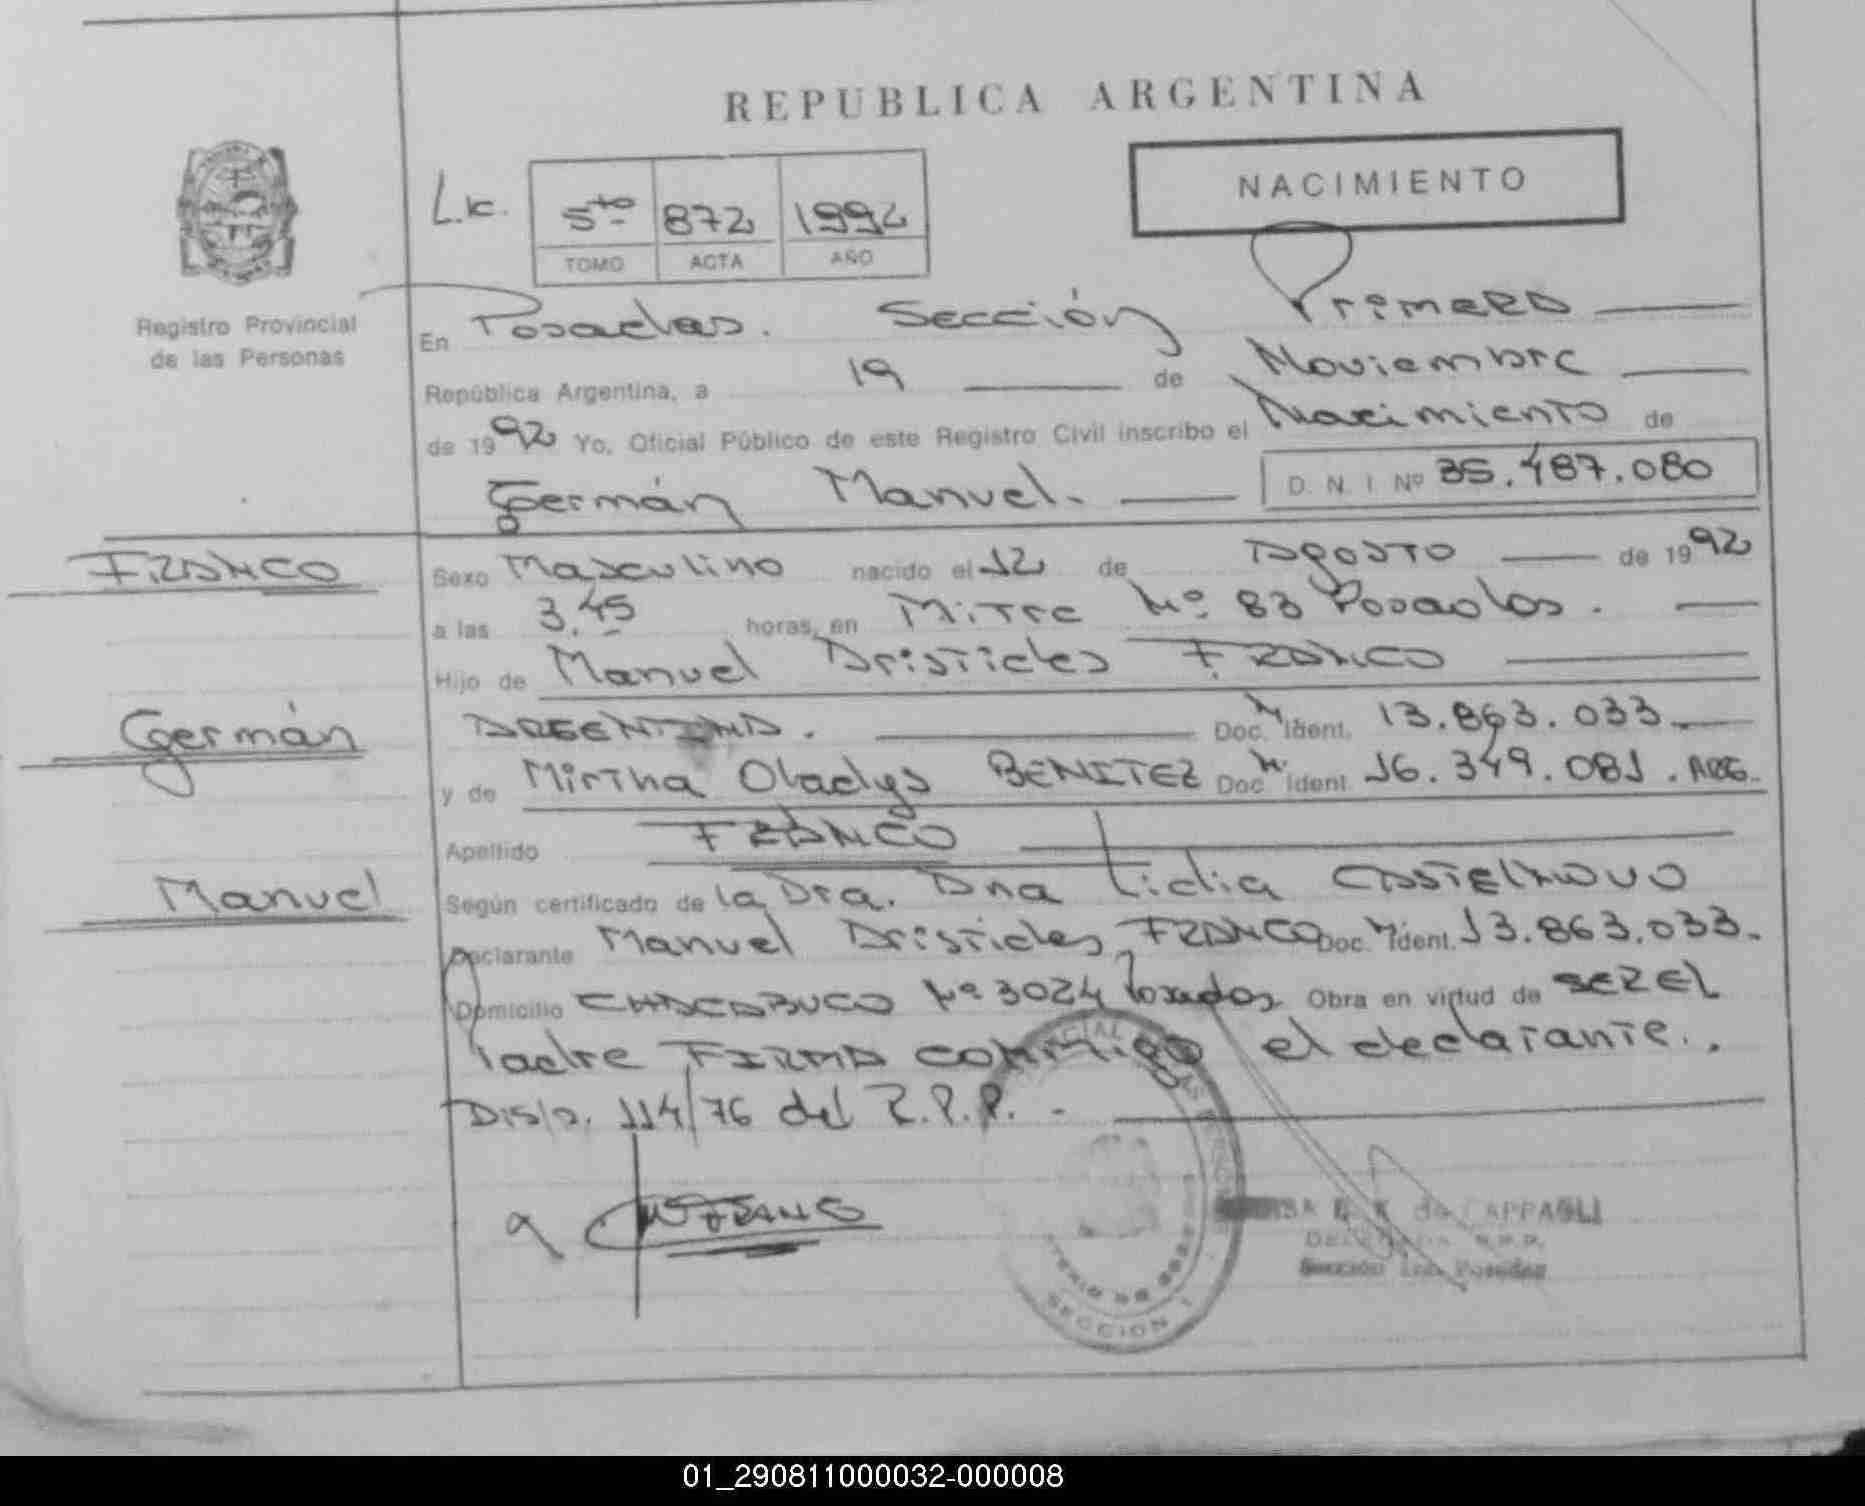 REPUBLICA ARGENTINA
NACIMIENTO
L.c. 5to 872 1992
TOMO ACTA AÑO
Registro Provincial
de las Personas
En Posadas. Sección Primera
República Argentina, a 19 de Noviembre
de 1992 Yo, Oficial Público de este Registro Civil inscribo el Nacimiento de
Germán Manuel. D. N. I. Nº 35.487.080
FRANCO
Sexo Masculino nacido el 12 de Agosto de 1992
a las 3.45 horas, en Mitre Nº 83 Posadas.
Hijo de Manuel Aristides FRANCO
Germán
ARGENTINA. Doc. N. Ident. 13.863.033
y de Mirtha Gladys BENITEZ Doc. N. Ident. 16.349.081. ARG.
Apellido FRANCO
Manuel
Según certificado de la Dra. Ana Lidia CASTELNOVO
Declarante Manuel Aristides FRANCO Doc. N Ident. 13.863.033.
Domicilio CHACABUCO Nº 3024 Posadas Obra en virtud de SER EL
Padre FIRMA conmigo el declarante.
Disp. 114/76 del R.P.P.
de CAPPAGLI
DELEGADA R.P.P.
Sección 1ra. Posadas
SECCION 1
01_290811000032-000008